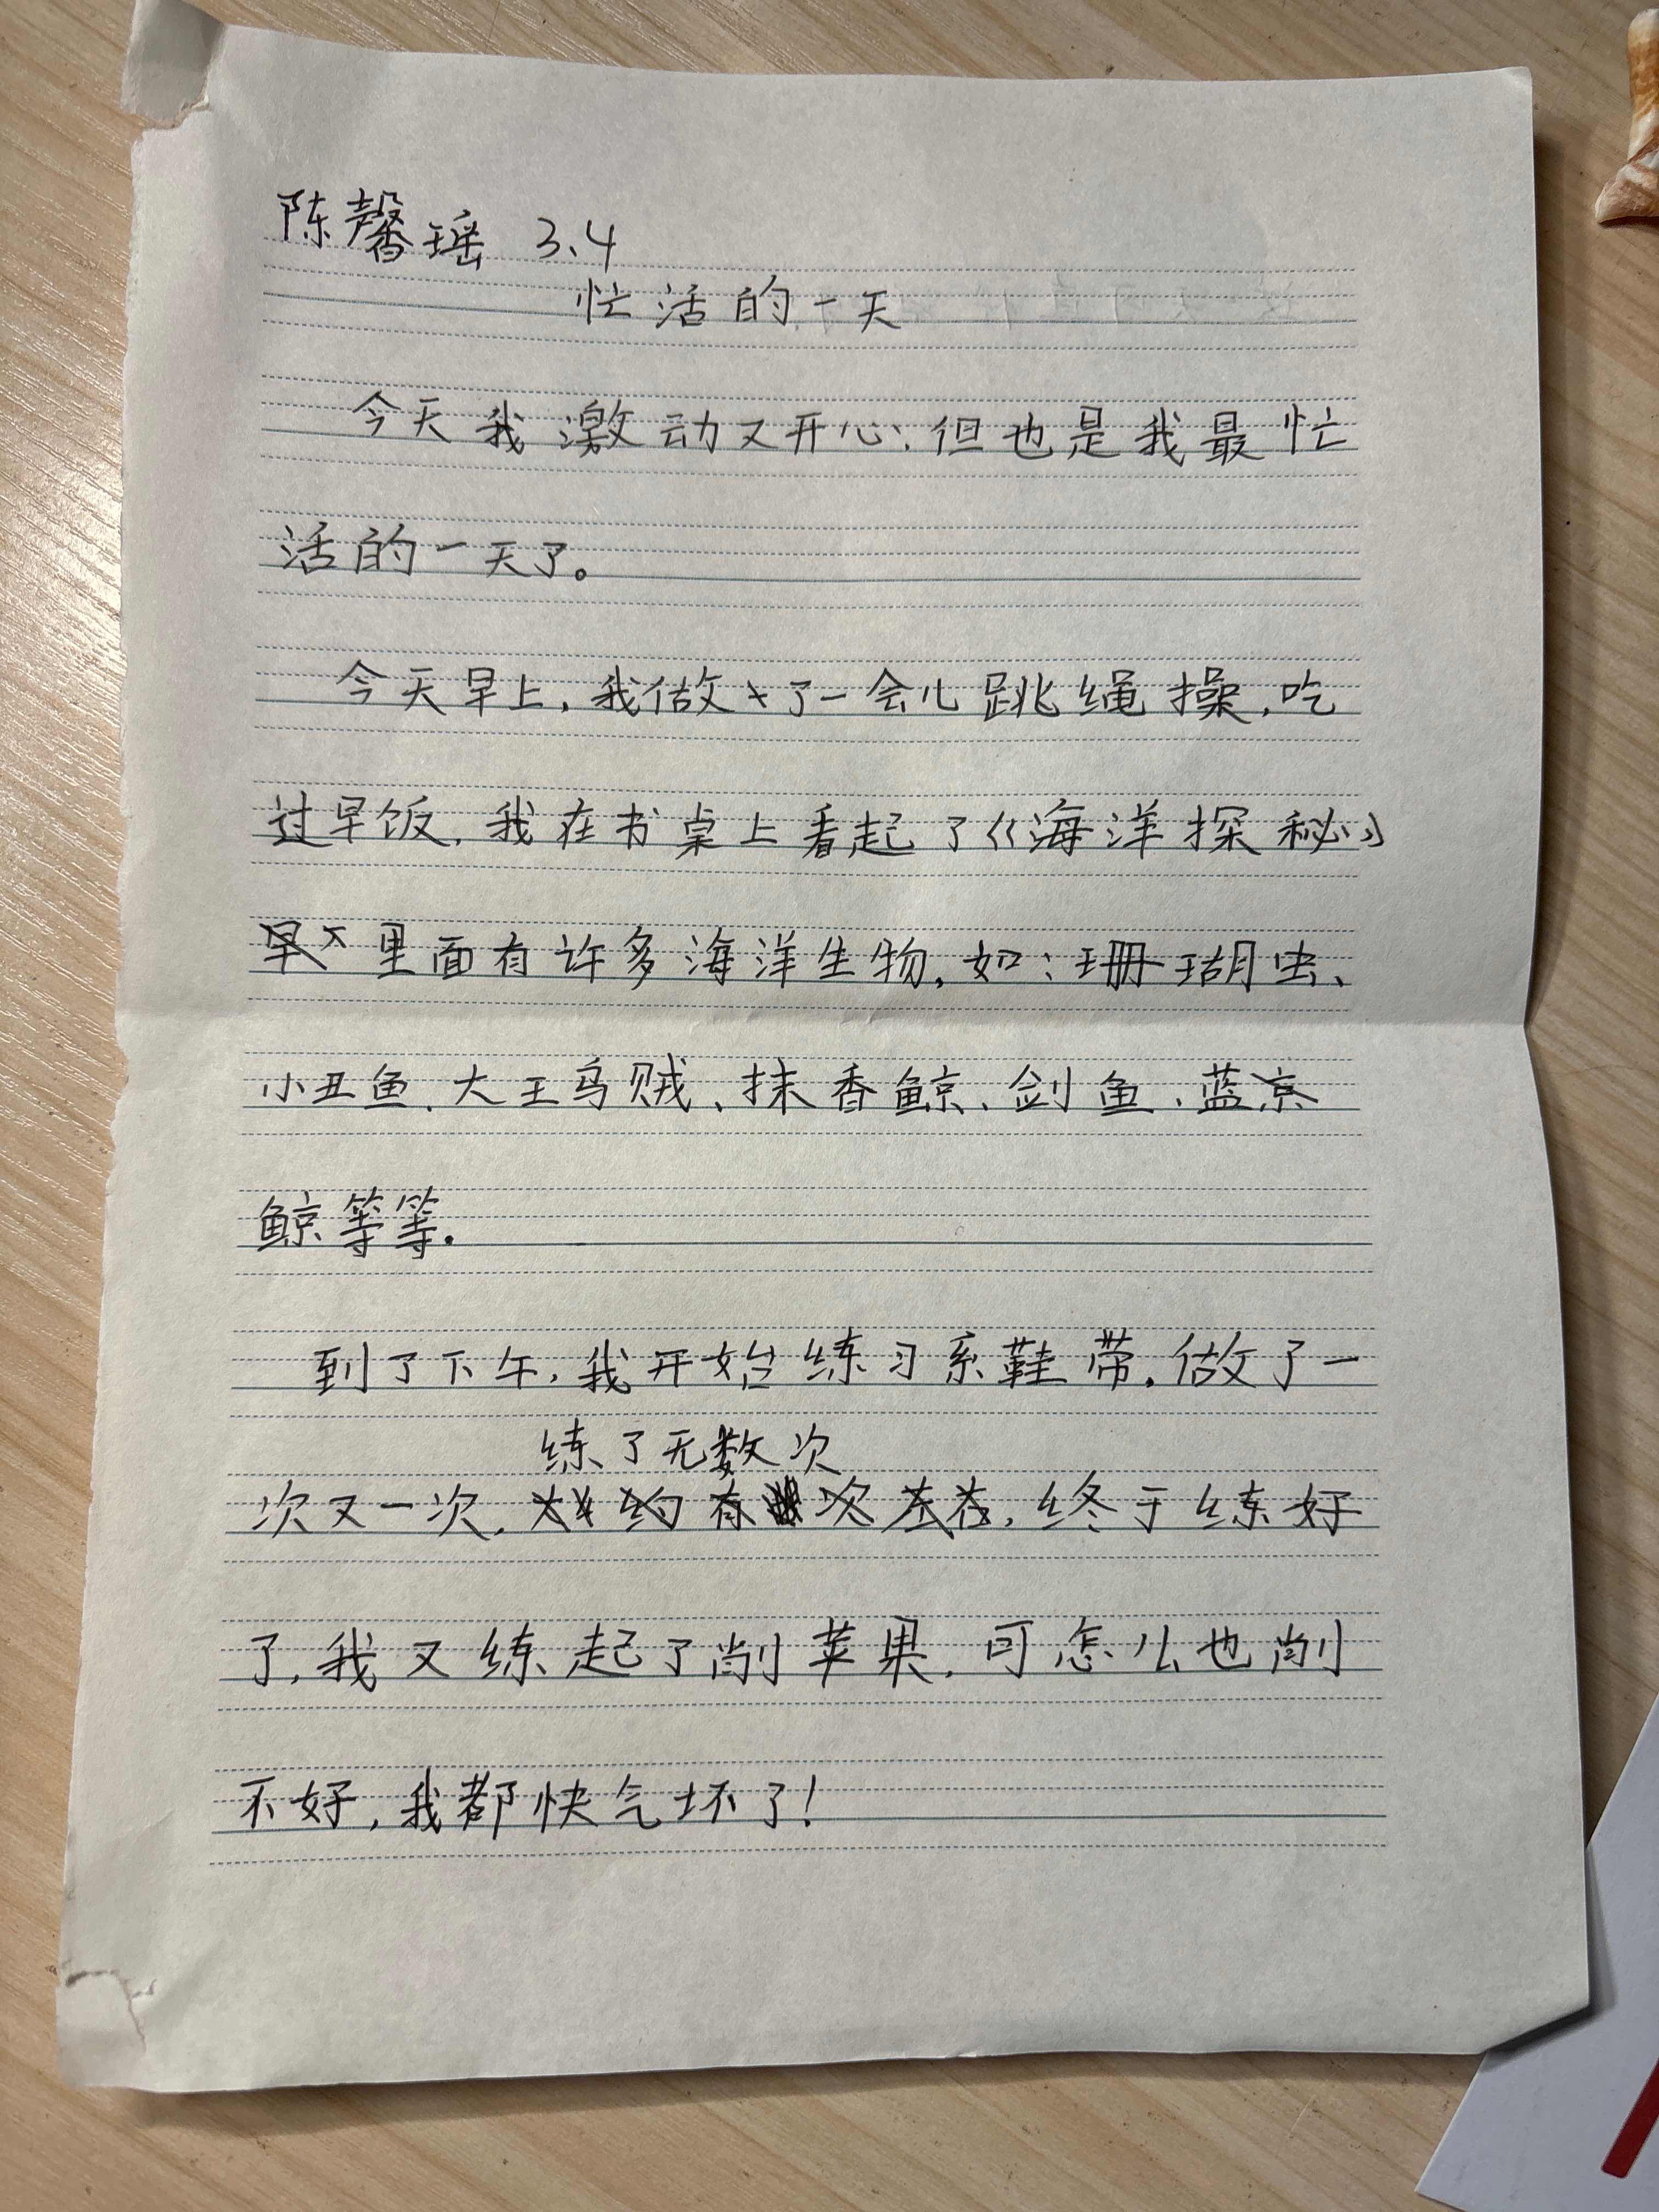 陈馨瑶 3.4
忙活的一天
今天我激动又开心,但也是我最忙
活的一天了。
今天早上,我做了一会儿跳绳操,吃
过早饭,我在书桌上看起了《海洋探秘》
里面有许多海洋生物,如:珊瑚虫、
小丑鱼、大王乌贼、抹香鲸、剑鱼、蓝
鲸等等.
到了下午,我开始练习系鞋带.做了一
练了无数次
次又一次,终于练好
了,我又练起了削苹果,可怎么也削
不好,我都快气坏了!